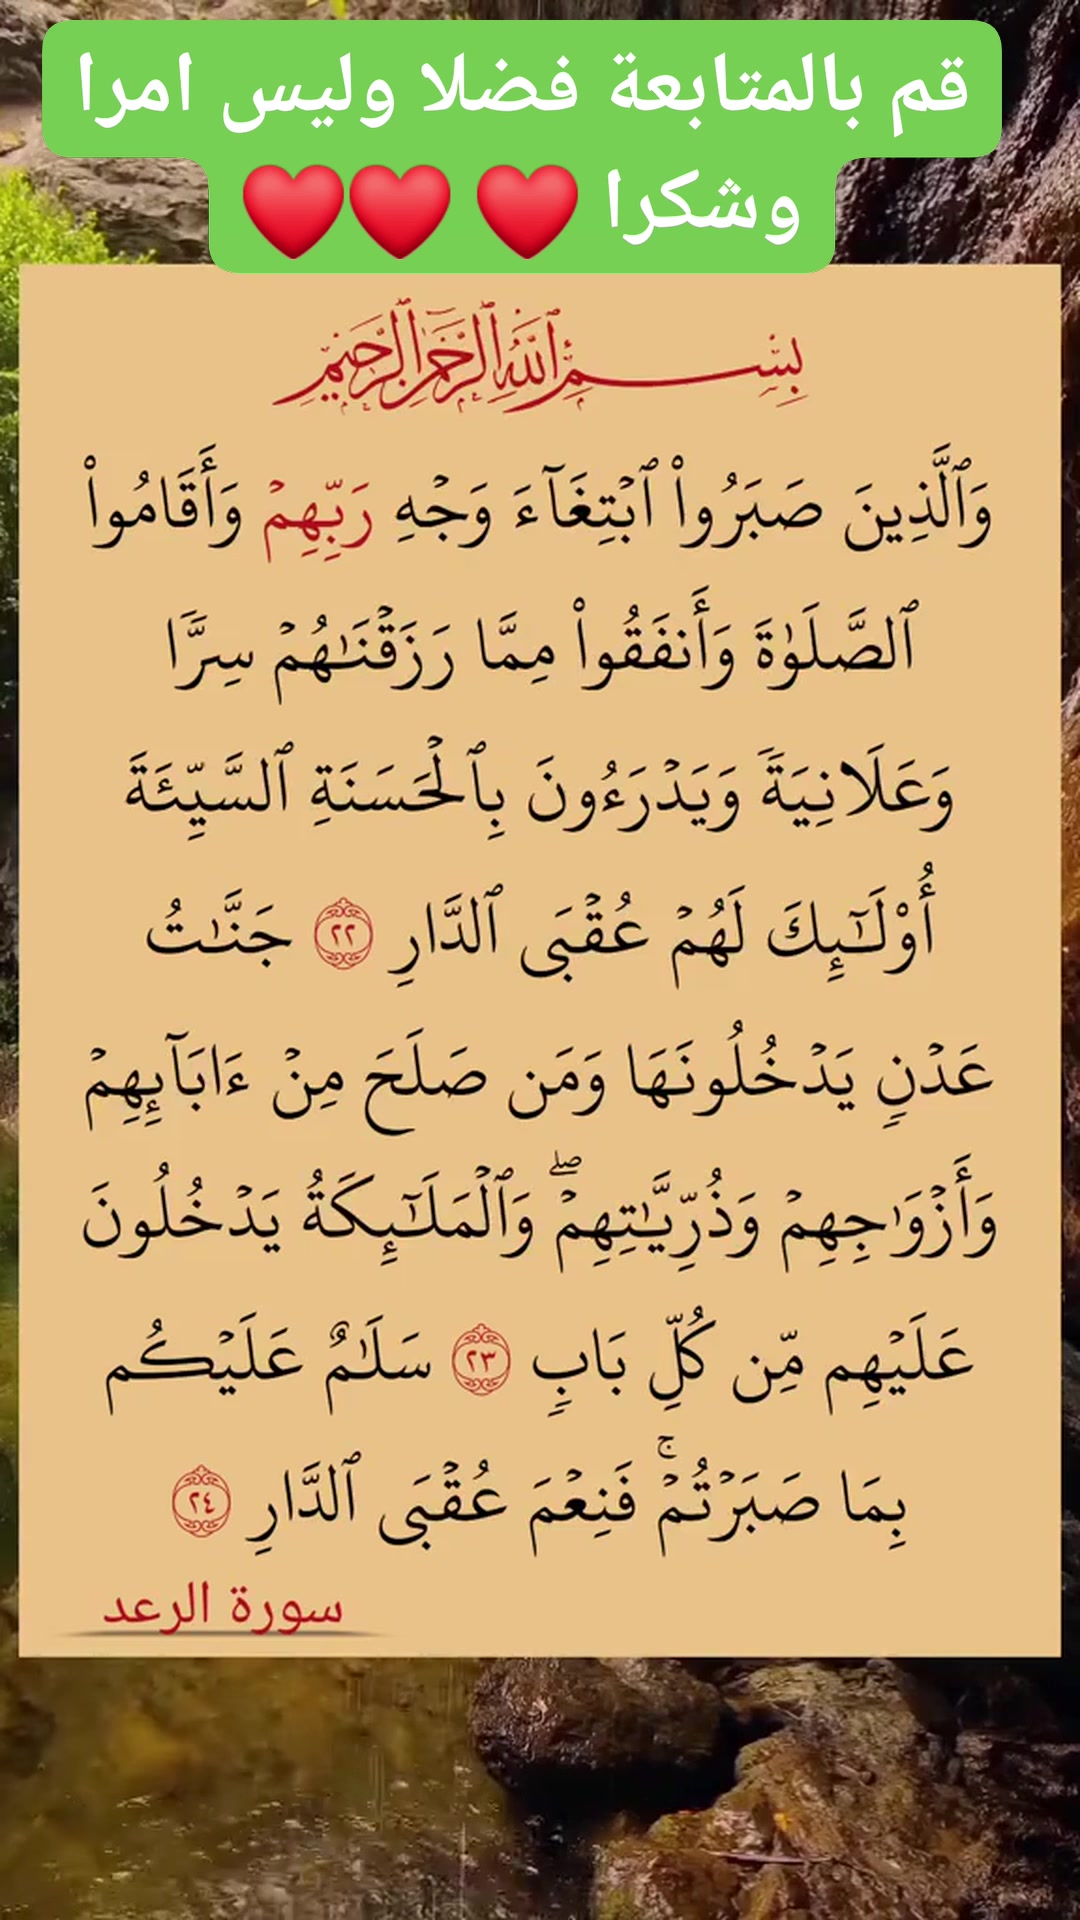 قم بالمتابعة فضلا وليس امرا
وشكرا ❤️ ❤️❤️
بِسْمِ ٱللَّهِ ٱلرَّحْمَٰنِ ٱلرَّحِيمِ
وَٱلَّذِينَ صَبَرُوا۟ ٱبْتِغَآءَ وَجْهِ رَبِّهِمْ وَأَقَامُوا۟
ٱلصَّلَوٰةَ وَأَنفَقُوا۟ مِمَّا رَزَقْنَـٰهُمْ سِرًّا
وَعَلَانِيَةً وَيَدْرَءُونَ بِٱلْحَسَنَةِ ٱلسَّيِّئَةَ
أُو۟لَـٰٓئِكَ لَهُمْ عُقْبَى ٱلدَّارِ ٢٢ جَنَّـٰتُ
عَدْنٍ يَدْخُلُونَهَا وَمَن صَلَحَ مِنْ ءَابَآئِهِمْ
وَأَزْوَٰجِهِمْ وَذُرِّيَّـٰتِهِمْ ۖ وَٱلْمَلَـٰٓئِكَةُ يَدْخُلُونَ
عَلَيْهِم مِّن كُلِّ بَابٍ ٢٣ سَلَـٰمٌ عَلَيْكُم
بِمَا صَبَرْتُمْ ۚ فَنِعْمَ عُقْبَى ٱلدَّارِ ٢٤
سورة الرعد